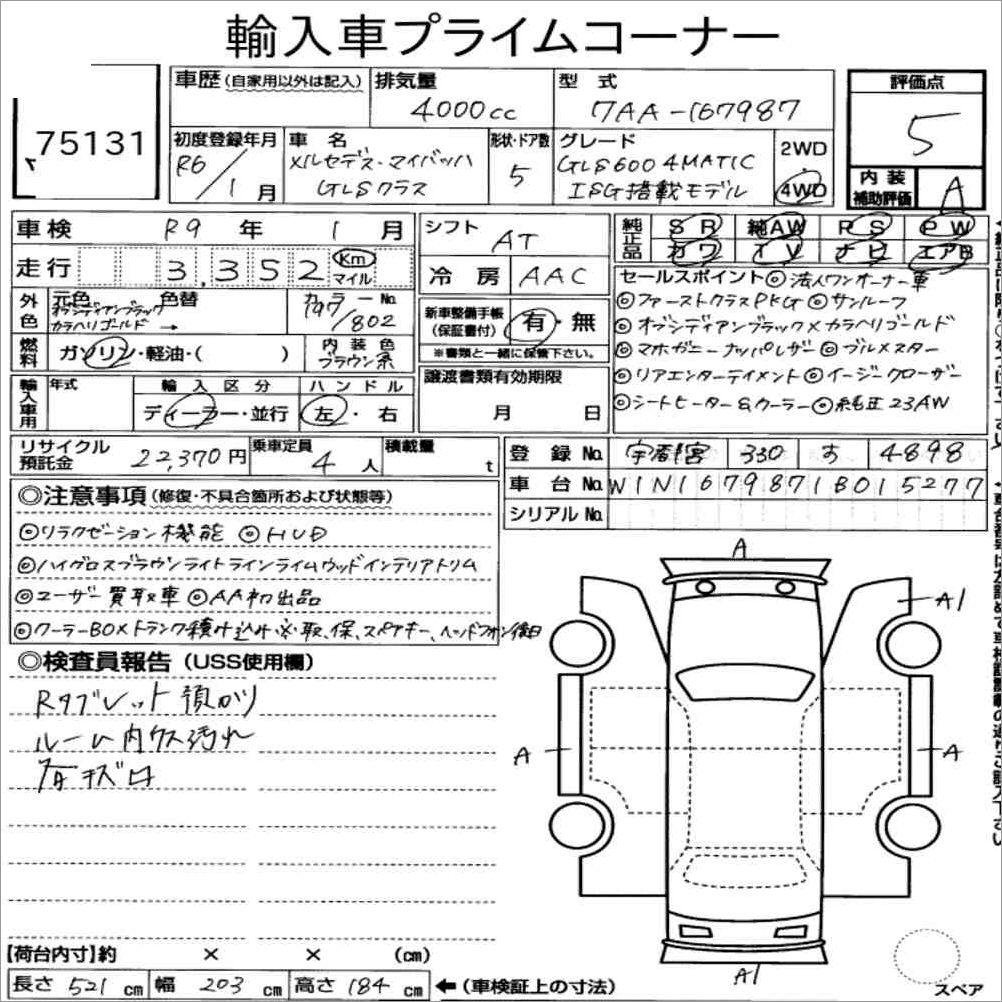 輸入車プライムコーナー
75131
車歴(自家用以外は記入)
排気量 4000cc
型式 7AA-167987
評価点 5
初度登録年月 R6/1月
車名 メルセデス・マイバッハ GLSクラス
形状・ドア数 5
グレード GLS600 4MATIC ISG搭載モデル
2WD 4WD
内装補助評価 A
車検 R9年 1月
シフト AT
純正品 SR 純AW PS PW
カワ TV ナビ エアB
走行 3,352 Km マイル
冷房 AAC
セールスポイント ◎法人ワンオーナー車
◎ファーストクラスPKG ◎サンルーフ
◎オブシディアンブラック×カラハリゴールド
◎マホガニーナッパレザー ◎ブルメスター
◎リアエンターテイメント ◎イージークローザー
◎シートヒーター&クーラー ◎純正23AW
外色 元色 オブシディアンブラック カラハリゴールド → 色替
カラーNo. 197/802
新車整備手帳(保証書付) 有・無
※書類と一緒に保管下さい。
燃料 ガソリン・軽油・( )
内装色 ブラウン系
譲渡書類有効期限 月 日
輸入車用 年式
輸入区分 ディーラー・並行
ハンドル 左・右
リサイクル預託金 22,370円
乗車定員 4人
積載量 t
登録No. 宇都宮 330 す 4898
車台No. W1N1679871B015277
シリアルNo.
◎注意事項(修復・不具合箇所および状態等)
◎リラクゼーション機能 ◎HUD
◎ハイグロスブラウンライトラインライムウッドインテリアトリム
◎ユーザー買取車 ◎AA初出品
◎クーラーBOXトランク積み込み ※取、保、スペアキー、ヘッドフォン後日
◎検査員報告(USS使用欄)
Rタブレット預かり
ルーム内クス汚れ
各キズ口
A
A1
A
A
A1
【荷台内寸】約 × × (cm)
長さ 521 cm 幅 203 cm 高さ 184 cm ←(車検証上の寸法)
スペア